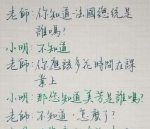 老師：你知道法國總統是
誰嗎？
小明：不知道
老師：你應該多花時間在課
業上
小明：那您知道美芳是誰嗎？
老師：不知道，怎麼了？